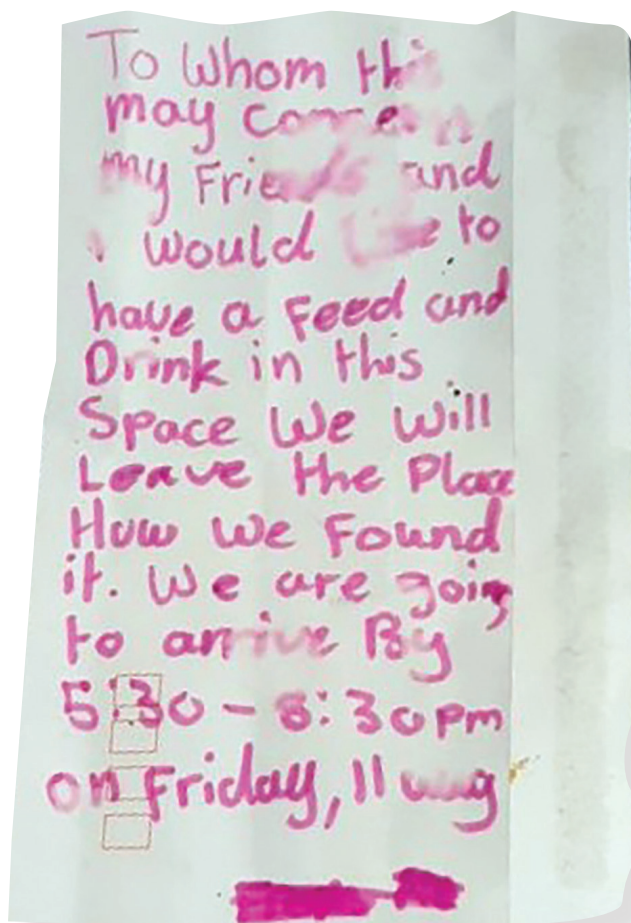 To Whom this
may concern
my Friends and
i would like to
have a Feed and
Drink in this
Space We Will
Leave the Place
How we Found
it. We are going
to arrive By
5:30 - 6:30pm
on Friday, 11 aug